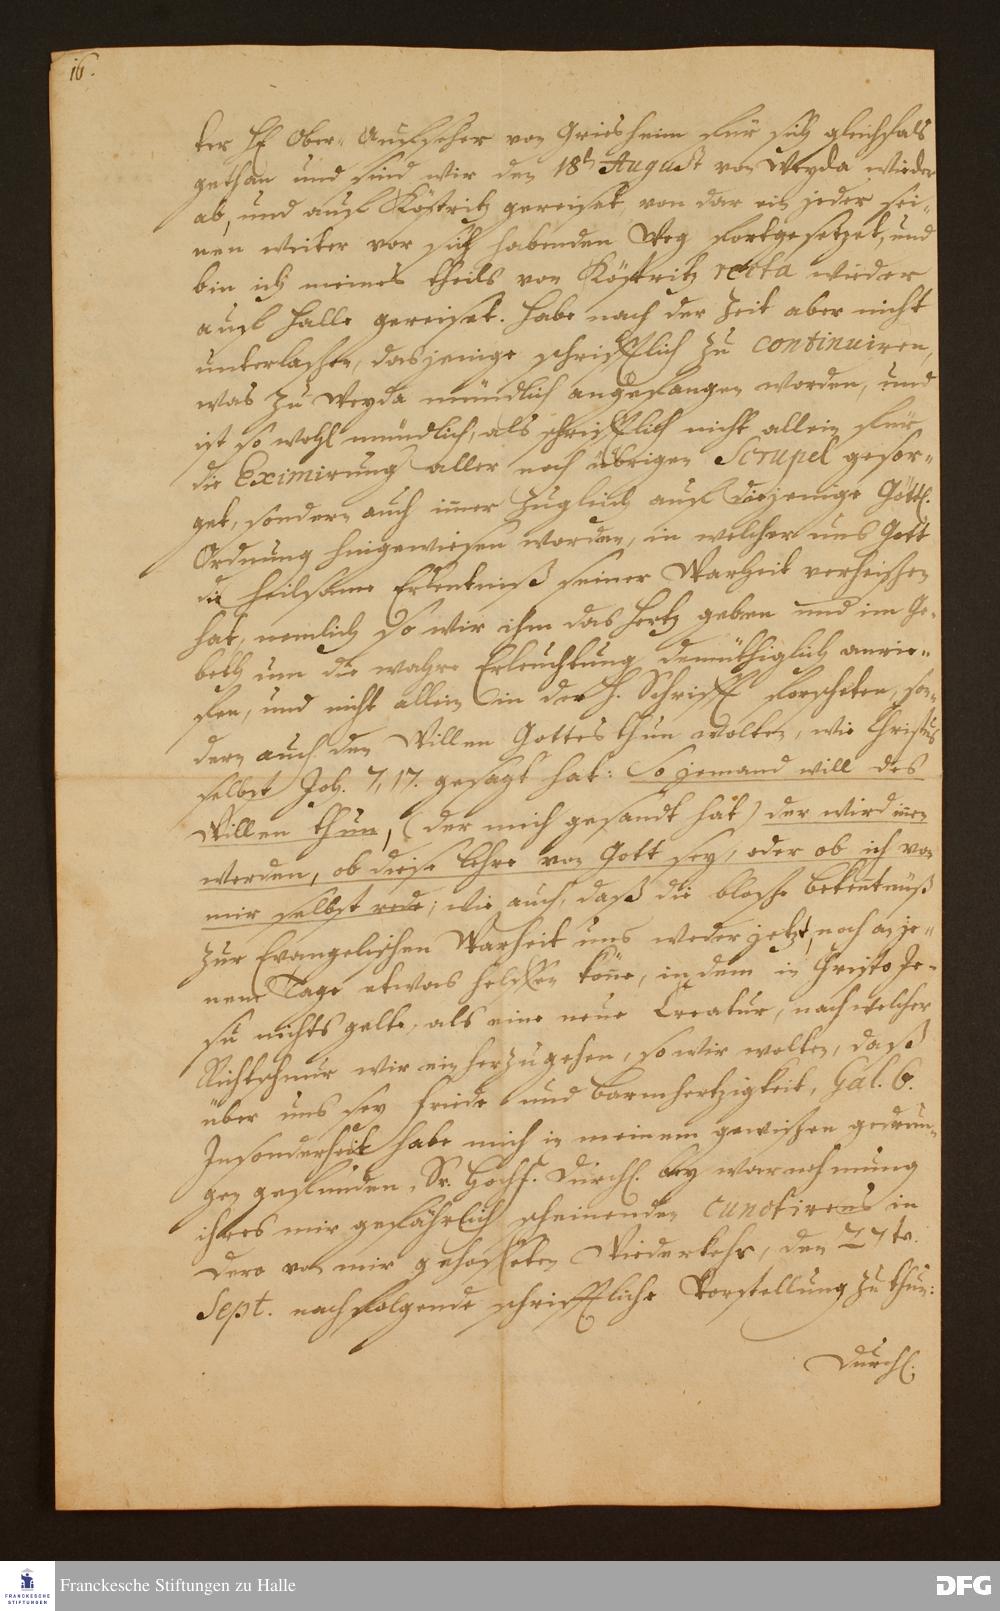 16.
ter H. Ober-Auffseher von Griesheim für sich gleichfals
gethan und sind wir den 18t August von Weyda wieder
ab, und auf Köstritz gereiset, von dar ein jeder sei-
nen weiter vor sich habenden Weg fortgesetzet, und
bin ich meines theils von Köstritz recta wieder
auf Halle gereiset. Habe nach der Zeit aber nicht
unterlassen, dasjenige schrifftlich zu continuiren,
was zu Weyda mündlich angefangen worden, und
ist so wohl mündlich, als schrifftlich nicht allein für
die Eximirung aller noch übrigen Scrupel gesor-
get, sondern auch immer zugleich auf diejenige Göttl.
Ordnung hingewiesen worden, in welcher uns Gott
die heilsame Erkentniß seiner Warheit verheissen
hat, nemlich so wir ihm das Hertz geben und im Ge-
beth um die wahre Erleuchtung demüthiglich anrie-
fen, und nicht allein in der H. Schrifft forscheten, son-
dern auch den Willen Gottes thun wolten, wie Christus
selbst Joh. 7, 17. gesagt hat: So jemand will des
Willen thun, (der mich gesandt hat) der wird innen
werden, ob diese Lehre von Gott sey, oder ob ich von
mir selbst rede; wie auch, daß die blosse Bekentnüß
zur Evangelischen Warheit uns weder jetzt, noch an je-
nem Tage etwas helffen könne, indem in Christo Je-
su nichts gelte, als eine neue Creatur, nach welcher
Richtschnur wir einherzugehen, so wir wolten, daß
über uns sey Friede und Barmhertzigkeit, Gal. 6.
Insonderheit habe mich in meinem gewissen gedrun-
gen gefunden, Sr. Hochf. Durchl. bey warnehmung
ihres mir gefährlich scheinenden cunctirens in
dero von mir gehofften Wiederkehr, den 27 tn.
Sept. nachfolgende schrifftliche Vorstellung zu thun:
Durchl.
Franckesche Stiftungen zu Halle
FRANCKESCHE
STIFTUNGEN
DFG